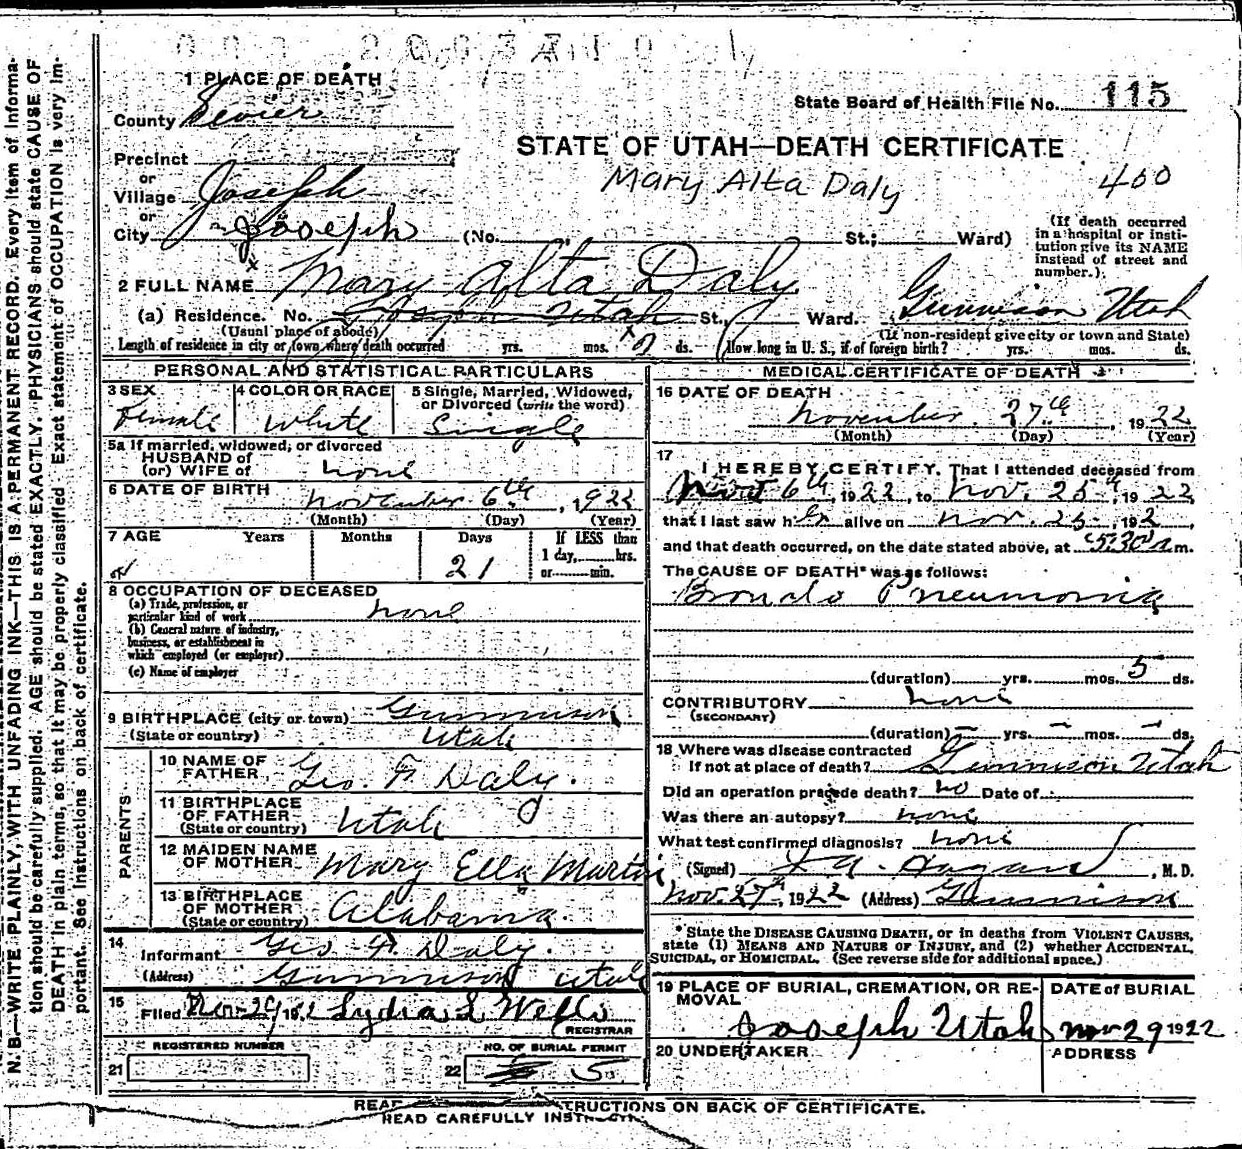 1 PLACE OF DEATH
County Sevier
State Board of Health File No. 115
STATE OF UTAH—DEATH CERTIFICATE
Mary Alta Daly
400
Precinct
or
Village Joseph
or
City Joseph (No. St.; Ward)
(If death occurred in a hospital or institution give its NAME instead of street and number.)
2 FULL NAME Mary Alta Daly
(a) Residence. No. Joseph Utah St., Ward. Gunnison Utah
(Usual place of abode) (If non-resident give city or town and State)
Length of residence in city or town where death occurred yrs. mos. 2 ds. How long in U. S., if of foreign birth? yrs. mos. ds.
PERSONAL AND STATISTICAL PARTICULARS
3 SEX 4 COLOR OR RACE 5 Single, Married, Widowed, or Divorced (write the word)
Female White Single
5a If married, widowed, or divorced
HUSBAND of
(or) WIFE of none
6 DATE OF BIRTH
November 6th, 1922
(Month) (Day) (Year)
7 AGE Years Months Days If LESS than
1 day, hrs.
21 or min.
8 OCCUPATION OF DECEASED
(a) Trade, profession, or
particular kind of work none
(b) General nature of industry,
business, or establishment in
which employed (or employer)
(c) Name of employer
9 BIRTHPLACE (city or town) Gunnison
(State or country) Utah
PARENTS
10 NAME OF
FATHER Geo. F. Daly.
11 BIRTHPLACE
OF FATHER Utah
(State or country)
12 MAIDEN NAME
OF MOTHER Mary Ella Martin
13 BIRTHPLACE
OF MOTHER Alabama.
(State or country)
14
Informant Geo. F. Daly.
(Address) Gunnison Utah
15
Filed Nov 29, 192 Lydia S Wells
REGISTRAR
REGISTERED NUMBER NO. OF BURIAL PERMIT
21 22 5
MEDICAL CERTIFICATE OF DEATH
16 DATE OF DEATH
November 27th, 1922
(Month) (Day) (Year)
17
I HEREBY CERTIFY, That I attended deceased from
6th, 1922, to Nov. 25th, 1922,
that I last saw her alive on Nov. 25, 192,
and that death occurred, on the date stated above, at 5:30 a.m.
The CAUSE OF DEATH* was as follows:
Broncho Pneumonia
(duration) yrs. mos. 5 ds.
CONTRIBUTORY none
(SECONDARY)
(duration) — yrs. — mos. — ds.
18 Where was disease contracted
If not at place of death? Gunnison Utah
Did an operation precede death? no Date of
Was there an autopsy? none
What test confirmed diagnosis? none
(Signed) Hagan, M. D.
Nov. 27th, 1922 (Address) Gunnison
*State the DISEASE CAUSING DEATH, or in deaths from VIOLENT CAUSES,
state (1) MEANS AND NATURE OF INJURY, and (2) whether ACCIDENTAL,
SUICIDAL, or HOMICIDAL. (See reverse side for additional space.)
19 PLACE OF BURIAL, CREMATION, OR REMOVAL DATE of BURIAL
Joseph Utah Nov 29 1922
20 UNDERTAKER ADDRESS
READ CAREFULLY INSTRUCTIONS ON BACK OF CERTIFICATE.
N. B.—WRITE PLAINLY, WITH UNFADING INK—THIS IS A PERMANENT RECORD. Every item of information should be carefully supplied. AGE should be stated EXACTLY. PHYSICIANS should state CAUSE OF DEATH in plain terms, so that it may be properly classified. Exact statement of OCCUPATION is very important. See instructions on back of certificate.